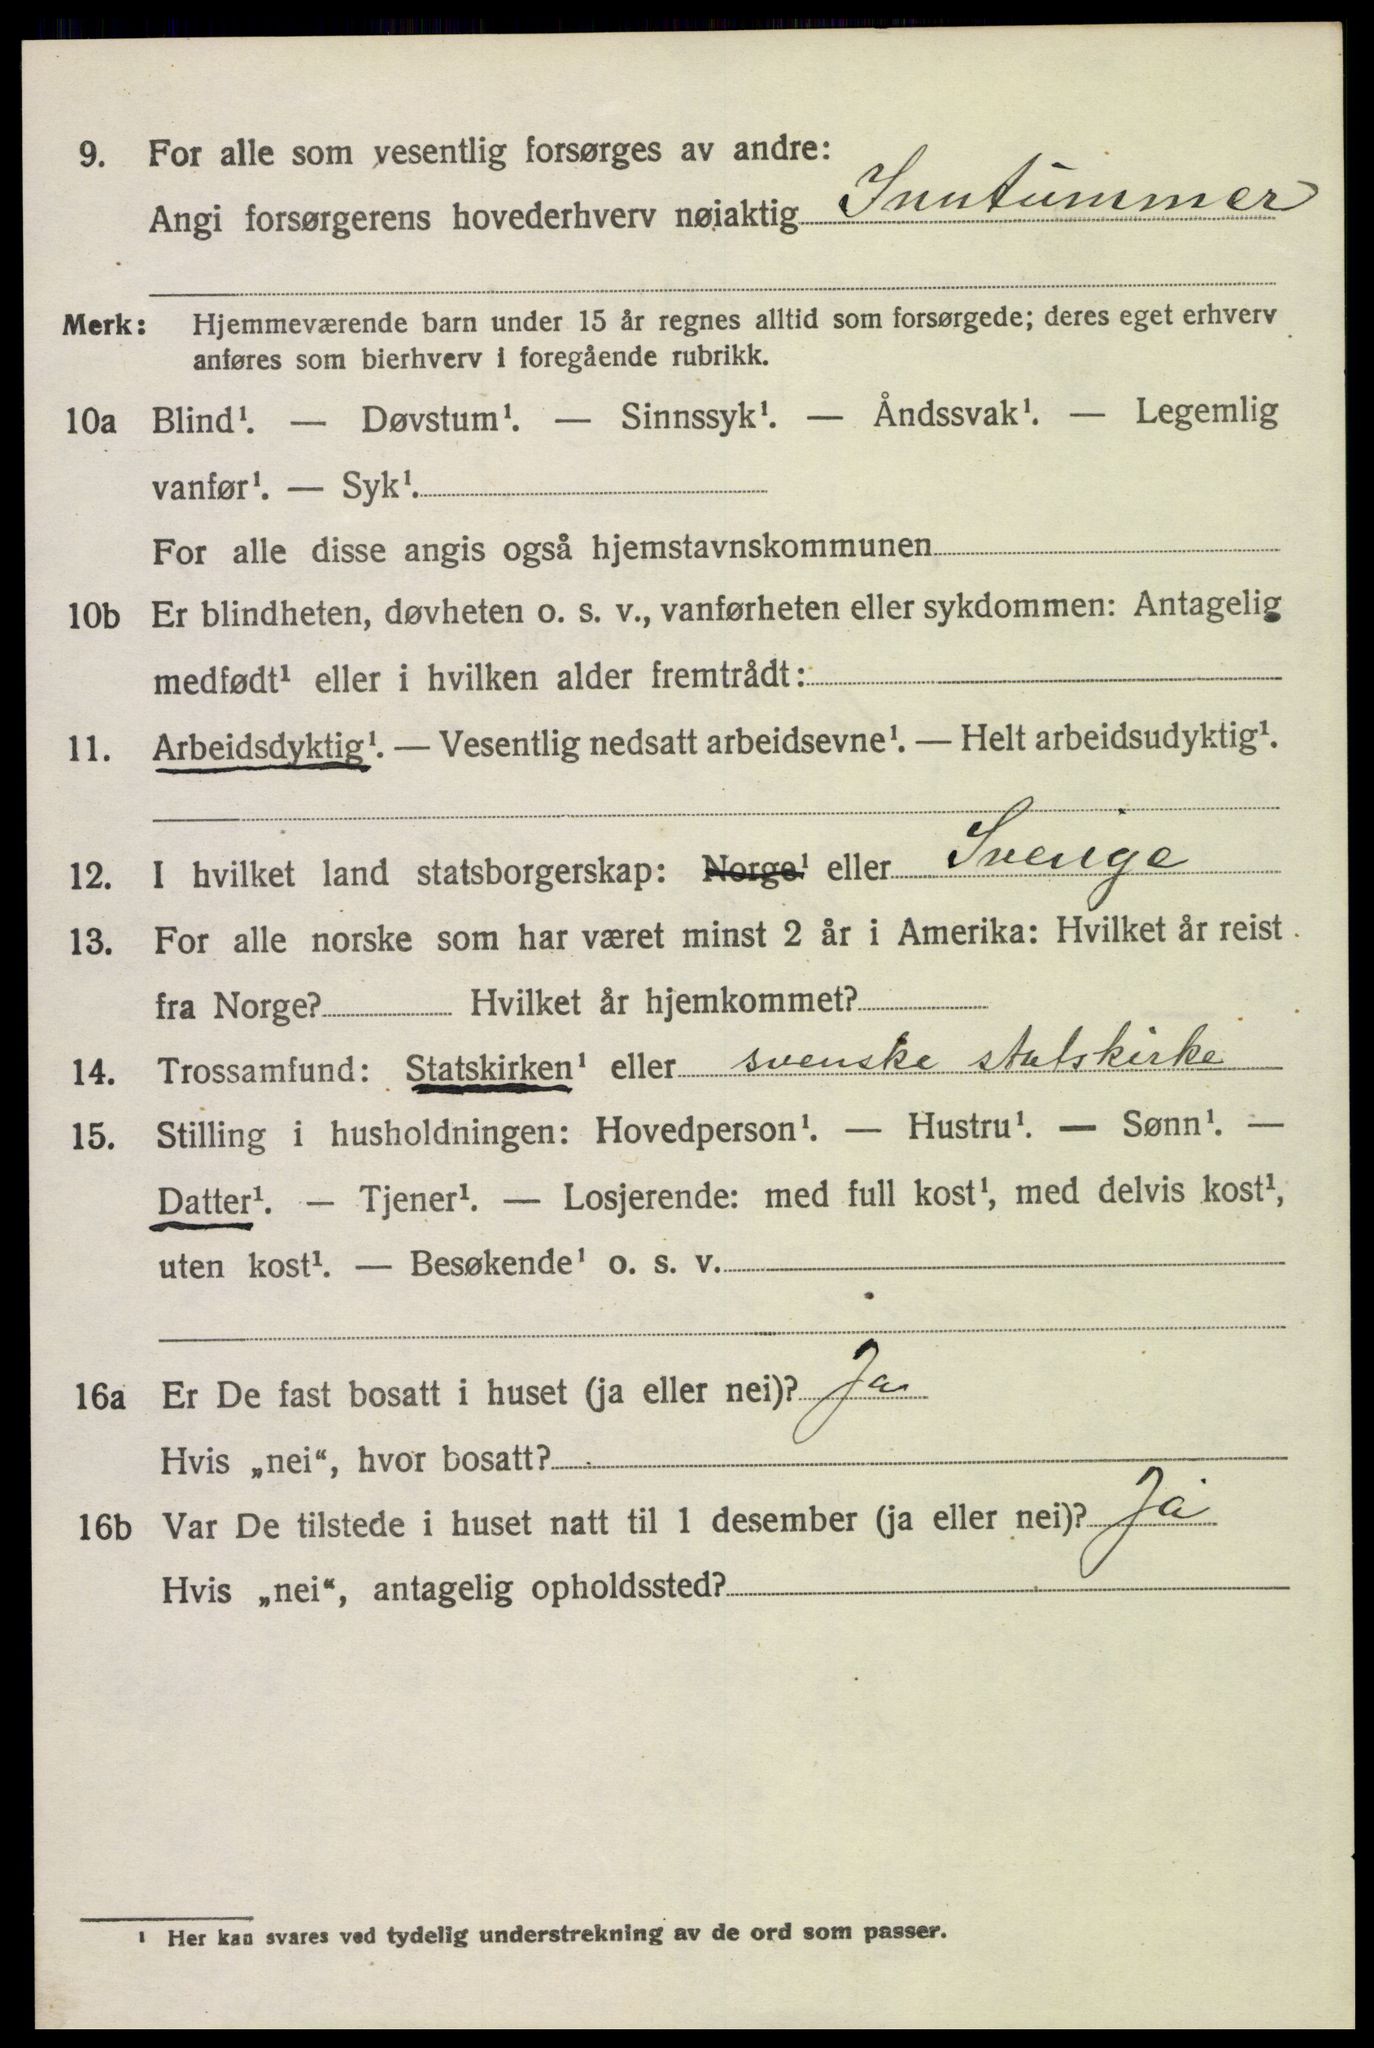 9. For alle som vesentlig forsørges av andre:
Angi forsørgerens hovederhverv nøiaktig
Merk: Hjemmeværende barn under 15 år regnes alltid som forsørgede; deres eget erhverv
anføres som bierhverv i foregående rubrikk.
10a Blind¹. — Døvstum¹. — Sinnssyk¹. — Åndssvak¹. — Legemlig
vanfør¹. — Syk¹.
For alle disse angis også hjemstavnskommunen
10b Er blindheten, døvheten o. s. v., vanførheten eller sykdommen: Antagelig
medfødt¹ eller i hvilken alder fremtrådt:
11. Arbeidsdyktig¹. — Vesentlig nedsatt arbeidsevne¹. — Helt arbeidsudyktig¹.
12. I hvilket land statsborgerskap: Norge¹ eller Sverige
13. For alle norske som har været minst 2 år i Amerika: Hvilket år reist
fra Norge? Hvilket år hjemkommet?
14. Trossamfund: Statskirken¹ eller svenske statskirke
15. Stilling i husholdningen: Hovedperson¹. — Hustru¹. — Sønn¹. —
Datter¹. — Tjener¹. — Losjerende: med full kost¹, med delvis kost¹,
uten kost¹. — Besøkende¹ o. s. v.
16a Er De fast bosatt i huset (ja eller nei)? Ja
Hvis „nei“, hvor bosatt?
16b Var De tilstede i huset natt til 1 desember (ja eller nei)? Ja
Hvis „nei“, antagelig opholdssted?
¹ Her kan svares ved tydelig understrekning av de ord som passer.